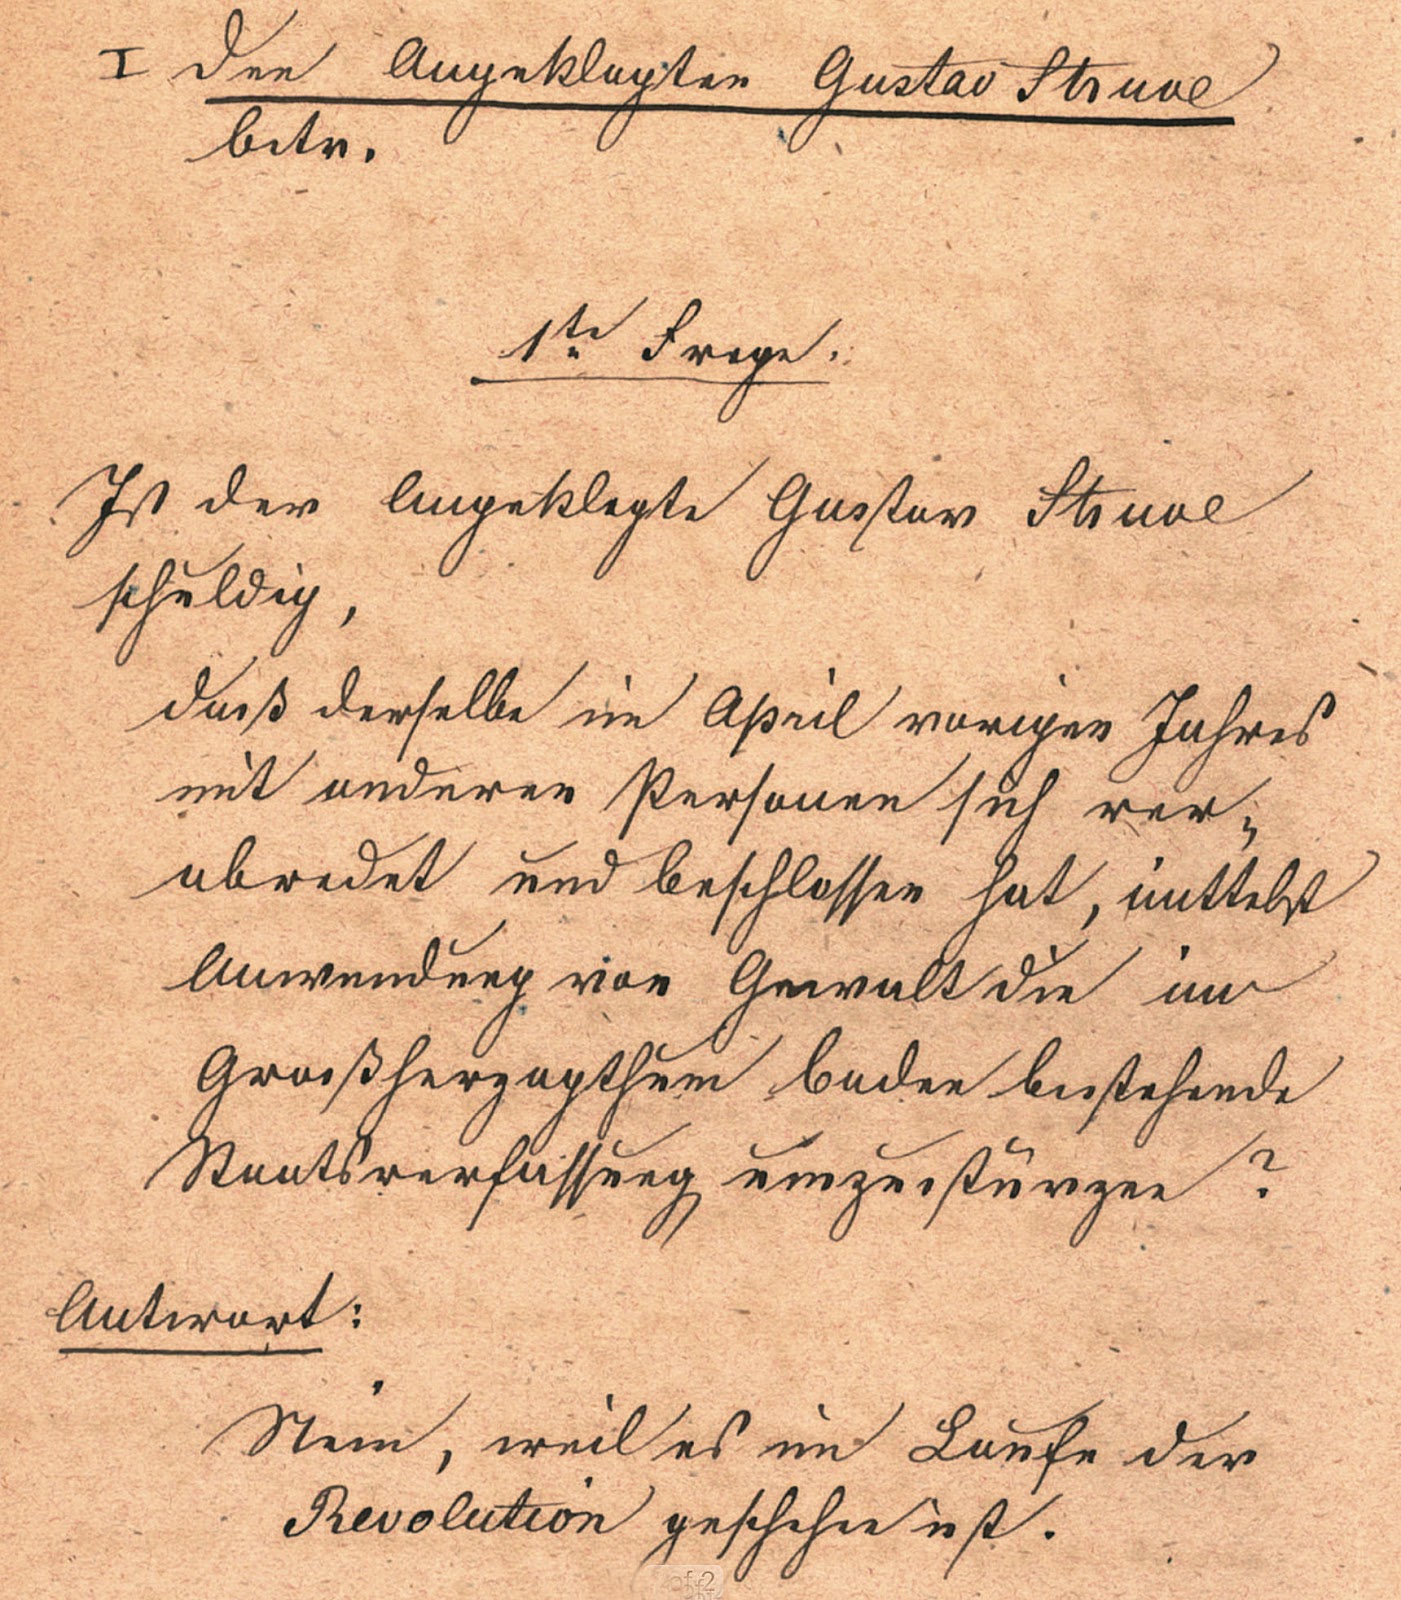 I Den Angeklagten Gustav Struve
betr.
1te Frage.
Ist der Angeklagte Gustav Struve
schuldig,
daß derselbe im April vorigen Jahres
mit anderen Personen sich ver-
abredet und beschlossen hat, mittelst
Anwendung von Gewalt die im
Großherzogthum Baden bestehende
Staatsverfassung umzustürzen?
Antwort:
Nein, weil es im Laufe der
Revolution geschehen ist.